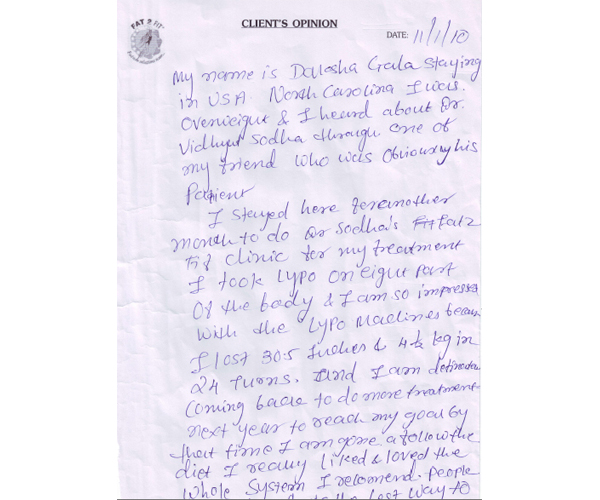 FAT 2 FIT
CLIENT'S OPINION
DATE: 11/1/10
My name is Daksha Gala staying
in USA North Carolina I was
Overweight & I heard about Dr.
Vidhyut Sodha through one of
my friend who was Obviously his
Patient
I stayed here for another
month to do Dr Sodha's Fat 2
Fit Clinic for my treatment
I took Lypo on eight Part
Of the body & I am so impress
with the Lypo Machines becau
I lost 30.5 Inches & 4½ kg in
24 turns. And I am
Coming back to do more treatment
next year to reach my goal by
that time I am gone a follow the
diet I really liked & loved the
whole System I recomend. People
the Last way to